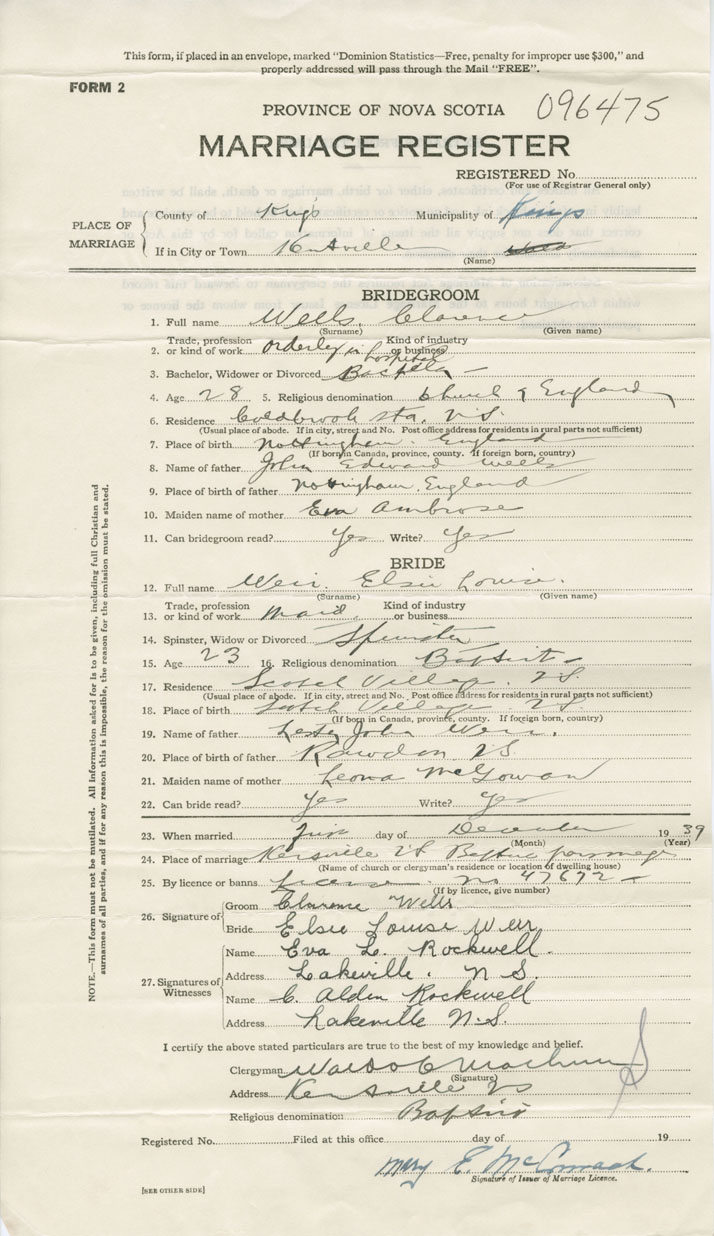 This form, if placed in an envelope, marked "Dominion Statistics—Free, penalty for improper use $300," and
properly addressed will pass through the Mail "FREE".
FORM 2
PROVINCE OF NOVA SCOTIA 096475
MARRIAGE REGISTER
REGISTERED No.
(For use of Registrar General only)
PLACE OF MARRIAGE
County of Kings Municipality of Kings
If in City or Town Kentville
(Name)
BRIDEGROOM
1. Full name Wells, Clarence
(Surname) (Given name)
2. Trade, profession or kind of work Orderly in hospital Kind of industry or business
3. Bachelor, Widower or Divorced Bachelor
4. Age 28 5. Religious denomination Church of England
6. Residence Coldbrook Sta. N.S.
(Usual place of abode. If in city, street and No. Post office address for residents in rural parts not sufficient)
7. Place of birth Nottingham. England
(If born in Canada, province, county. If foreign born, country)
8. Name of father John Edward Wells
9. Place of birth of father Nottingham. England
10. Maiden name of mother Eva Ambrose
11. Can bridegroom read? Yes Write? Yes
BRIDE
12. Full name Weir. Elsie Louise.
(Surname) (Given name)
13. Trade, profession or kind of work Maid. Kind of industry or business
14. Spinster, Widow or Divorced Spinster
15. Age 23 16. Religious denomination Baptist
17. Residence Scotch Village. N.S.
(Usual place of abode. If in city, street and No. Post office address for residents in rural parts not sufficient)
18. Place of birth Scotch Village. N.S.
(If born in Canada, province, county. If foreign born, country)
19. Name of father Lester John Weir.
20. Place of birth of father Rawdon NS
21. Maiden name of mother Leona McGowan
22. Can bride read? Yes Write? Yes
23. When married First day of December 1939
(Month) (Year)
24. Place of marriage Kentville NS Baptist parsonage
(Name of church or clergyman's residence or location of dwelling house)
25. By licence or banns License. No 47672
(If by licence, give number)
26. Signature of
Groom Clarence Wells
Bride Elsie Louise Weir
27. Signatures of Witnesses
Name Eva L. Rockwell.
Address Lakeville. N S.
Name C. Alden Rockwell
Address Lakeville N.S.
I certify the above stated particulars are true to the best of my knowledge and belief.
Clergyman
(Signature)
Address Kentville NS
Religious denomination Baptist
Registered No. Filed at this office day of 19
Mary E. McCormack.
Signature of Issuer of Marriage Licence.
[SEE OTHER SIDE]
NOTE.—This form must not be mutilated. All information asked for is to be given, including full Christian and
surnames of all parties, and if for any reason this is impossible, the reason for the omission must be stated.